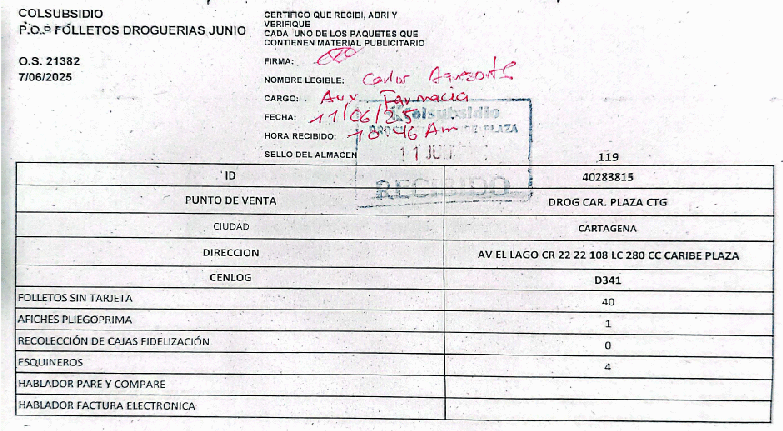 COLSUBSIDIO
P.O.P FOLLETOS DROGUERIAS JUNIO
O.S. 21382
7/06/2025
CERTIFICO QUE RECIBI, ABRI Y
VERIFIQUE
CADA UNO DE LOS PAQUETES QUE
CONTIENEN MATERIAL PUBLICITARIO
FIRMA:
NOMBRE LEGIBLE: Carlos
CARGO: Aux Farmacia
FECHA: 11/06/25
HORA RECIBIDO: 10:46 Am
SELLO DEL ALMACEN
Colsubsidio
DE PLAZA
11 JU
RECIBIDO
119
ID 40283815
PUNTO DE VENTA DROG CAR. PLAZA CTG
CIUDAD CARTAGENA
DIRECCION AV EL LAGO CR 22 22 108 LC 280 CC CARIBE PLAZA
CENLOG D341
FOLLETOS SIN TARJETA 40
AFICHES PLIEGOPRIMA 1
RECOLECCIÓN DE CAJAS FIDELIZACIÓN 0
ESQUINEROS 4
HABLADOR PARE Y COMPARE
HABLADOR FACTURA ELECTRONICA